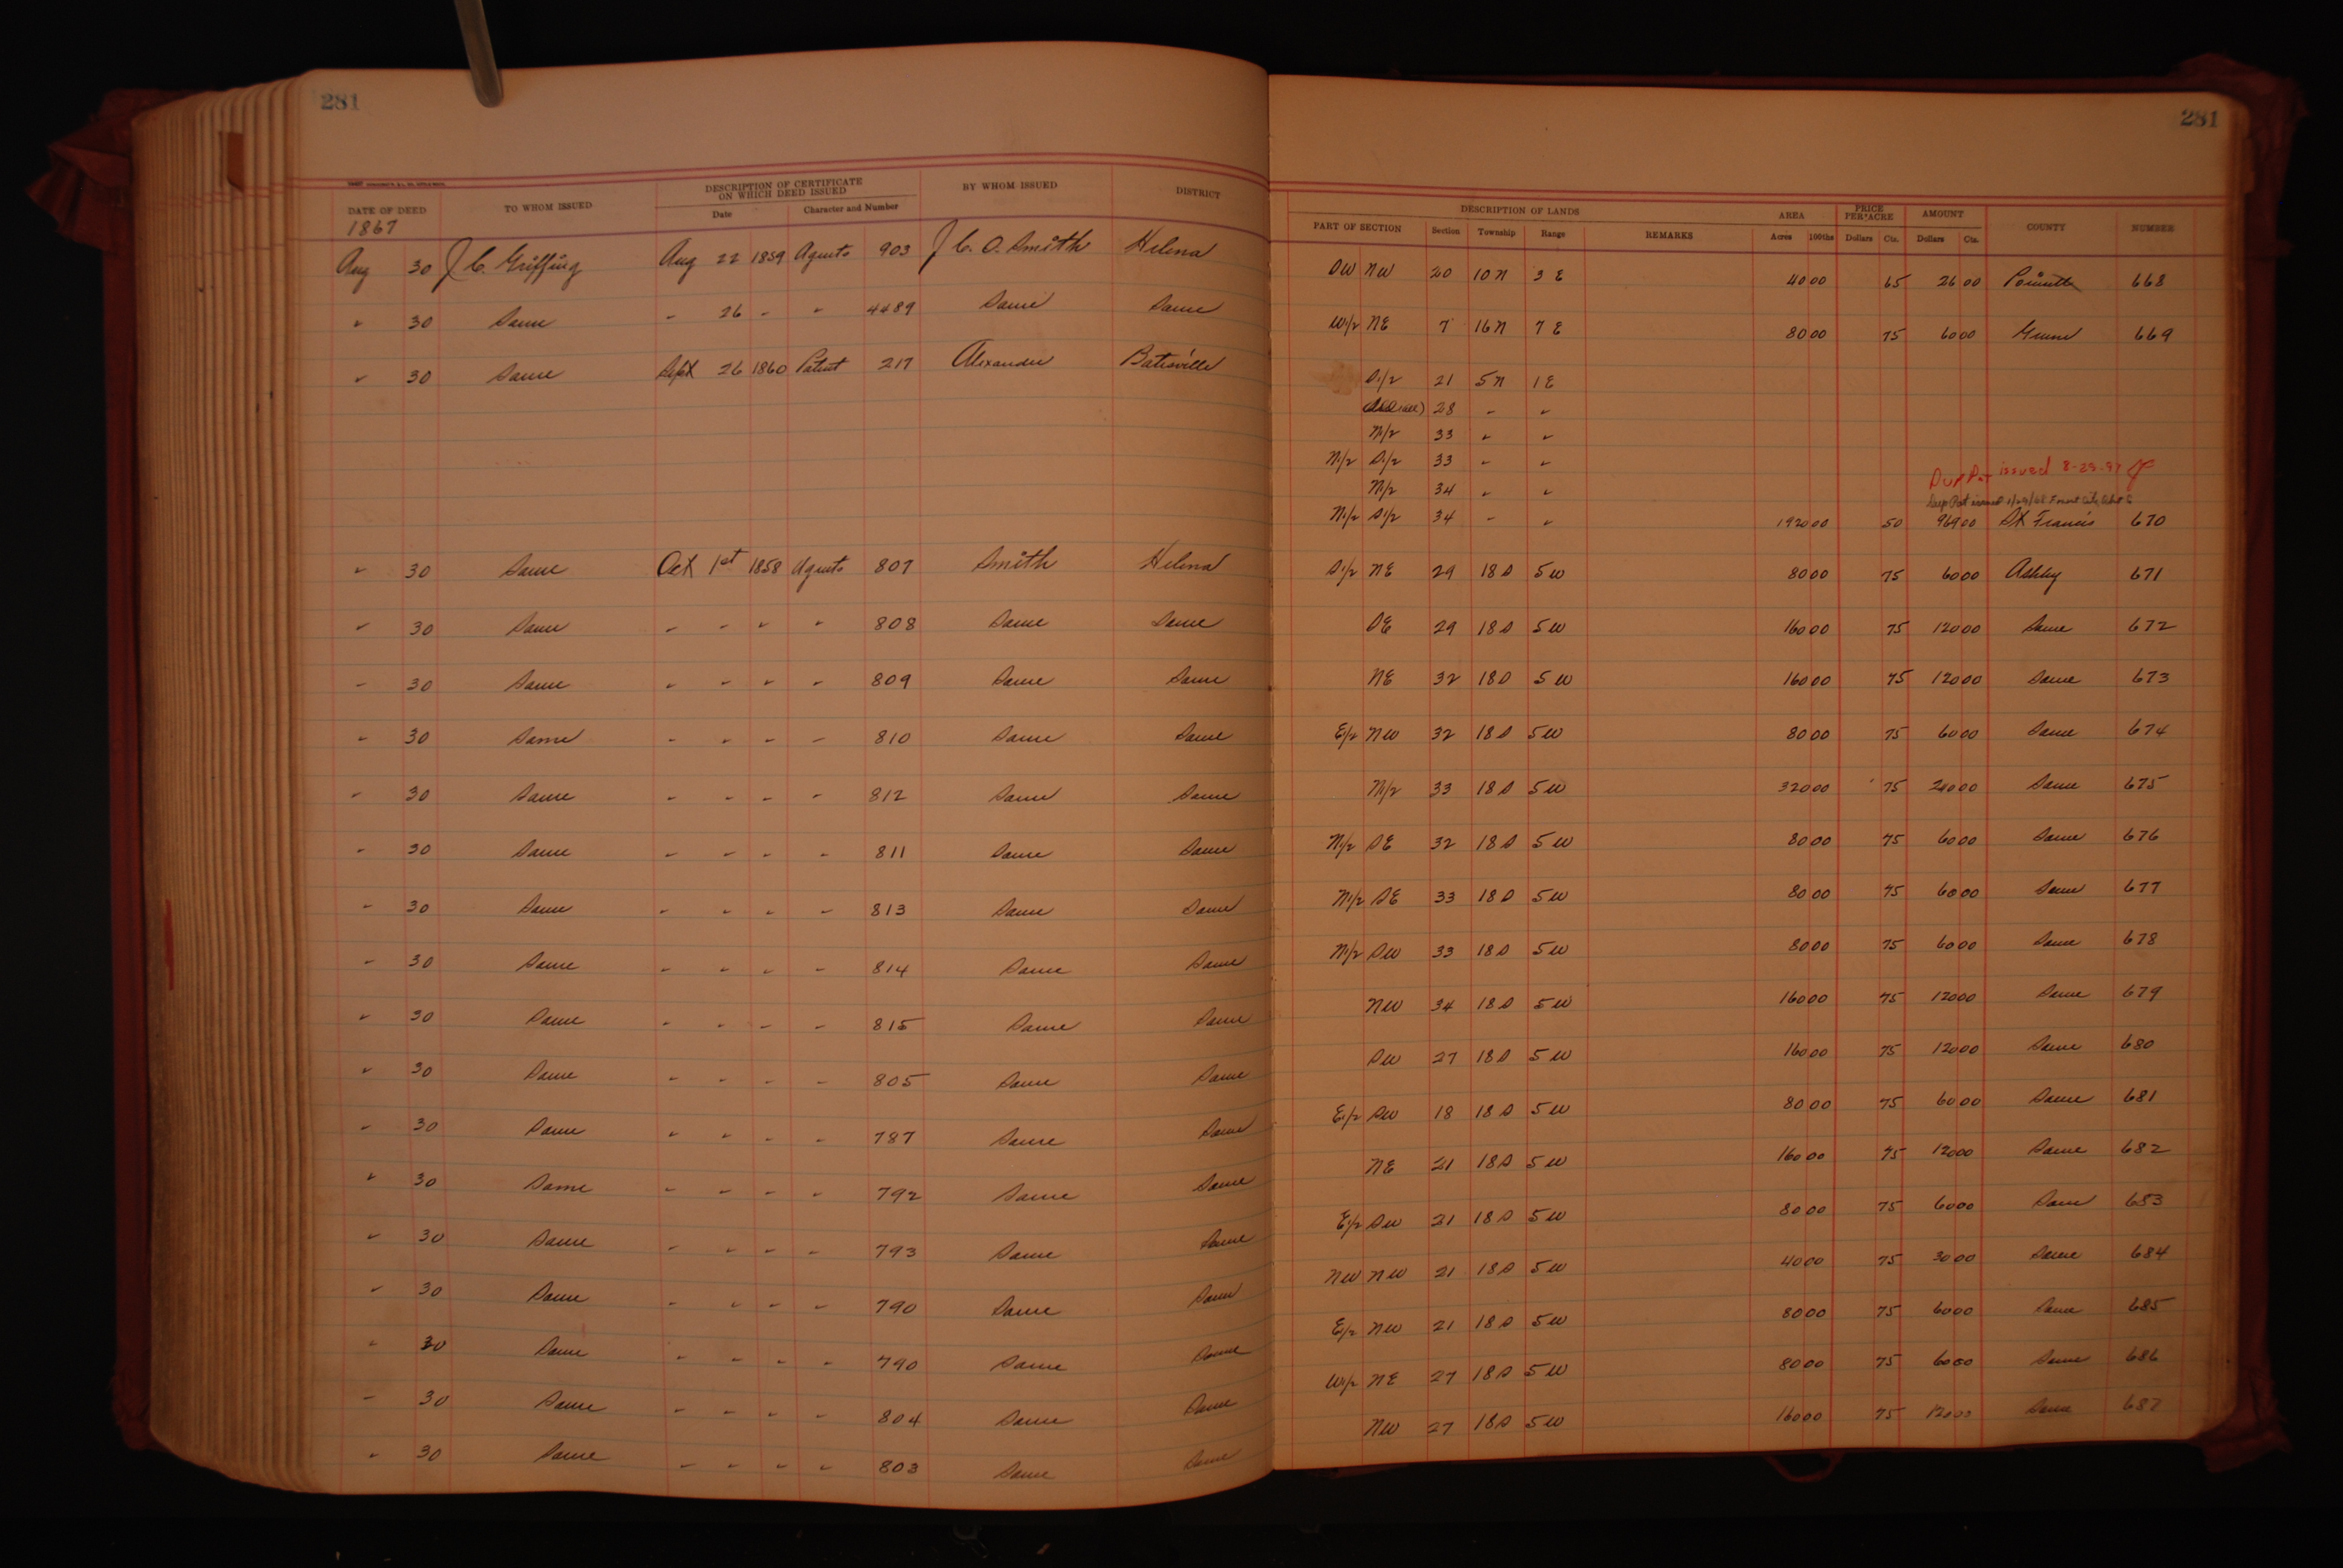 281
281
DATE OF DEED
TO WHOM ISSUED
DESCRIPTION OF CERTIFICATE ON WHICH DEED ISSUED
Date
Character and Number
BY WHOM ISSUED
DISTRICT
DESCRIPTION OF LANDS
PART OF SECTION
Section
Township
Range
REMARKS
AREA
Acres 100ths
PRICE PER ACRE
Dollars Cts.
AMOUNT
Dollars Cts.
COUNTY
NUMBER
1867
Aug 30 J C. Griffing Aug 22 1859 Agents 903 J C. O. Smith Helena SW NW 20 10 N 3 E 40 00 65 26 00 Poinsett 668
" 30 Same " 26 " " 4489 Same Same W1/2 NE 7 16 N 7 E 80 00 75 60 00 Greene 669
" 30 Same Sept 26 1860 Patent 217 Alexander Batesville S1/2 21 5 N 1 E
28 " "
N1/2 33 " "
N1/2 S1/2 33 " "
Dup Pat issued 8-29-97
N1/2 34 " "
Dup Pat issued
N1/2 S1/2 34 " " 1920 00 50 960 00 St Francis 670
" 30 Same Oct 1st 1858 Agents 807 Smith Helena S1/2 NE 29 18 S 5 W 80 00 75 60 00 Ashley 671
" 30 Same " " " " 808 Same Same SE 29 18 S 5 W 160 00 75 120 00 Same 672
" 30 Same " " " " 809 Same Same NE 32 18 S 5 W 160 00 75 120 00 Same 673
" 30 Same " " " " 810 Same Same E1/2 NW 32 18 S 5 W 80 00 75 60 00 Same 674
" 30 Same " " " " 812 Same Same N1/2 33 18 S 5 W 320 00 75 240 00 Same 675
" 30 Same " " " " 811 Same Same N1/2 SE 32 18 S 5 W 80 00 75 60 00 Same 676
" 30 Same " " " " 813 Same Same N1/2 SE 33 18 S 5 W 80 00 75 60 00 Same 677
" 30 Same " " " " 814 Same Same N1/2 SW 33 18 S 5 W 80 00 75 60 00 Same 678
" 30 Same " " " " 815 Same Same NW 34 18 S 5 W 160 00 75 120 00 Same 679
" 30 Same " " " " 805 Same Same SW 27 18 S 5 W 160 00 75 120 00 Same 680
" 30 Same " " " " 787 Same Same E1/2 SW 18 18 S 5 W 80 00 75 60 00 Same 681
" 30 Same " " " " 792 Same Same NE 21 18 S 5 W 160 00 75 120 00 Same 682
" 30 Same " " " " 793 Same Same E1/2 SW 21 18 S 5 W 80 00 75 60 00 Same 683
" 30 Same " " " " 790 Same Same NW NW 21 18 S 5 W 40 00 75 30 00 Same 684
" 30 Same " " " " 790 Same Same E1/2 NW 21 18 S 5 W 80 00 75 60 00 Same 685
" 30 Same " " " " 804 Same Same W1/2 NE 27 18 S 5 W 80 00 75 60 00 Same 686
" 30 Same " " " " 803 Same Same NW 27 18 S 5 W 160 00 75 120 00 Same 687